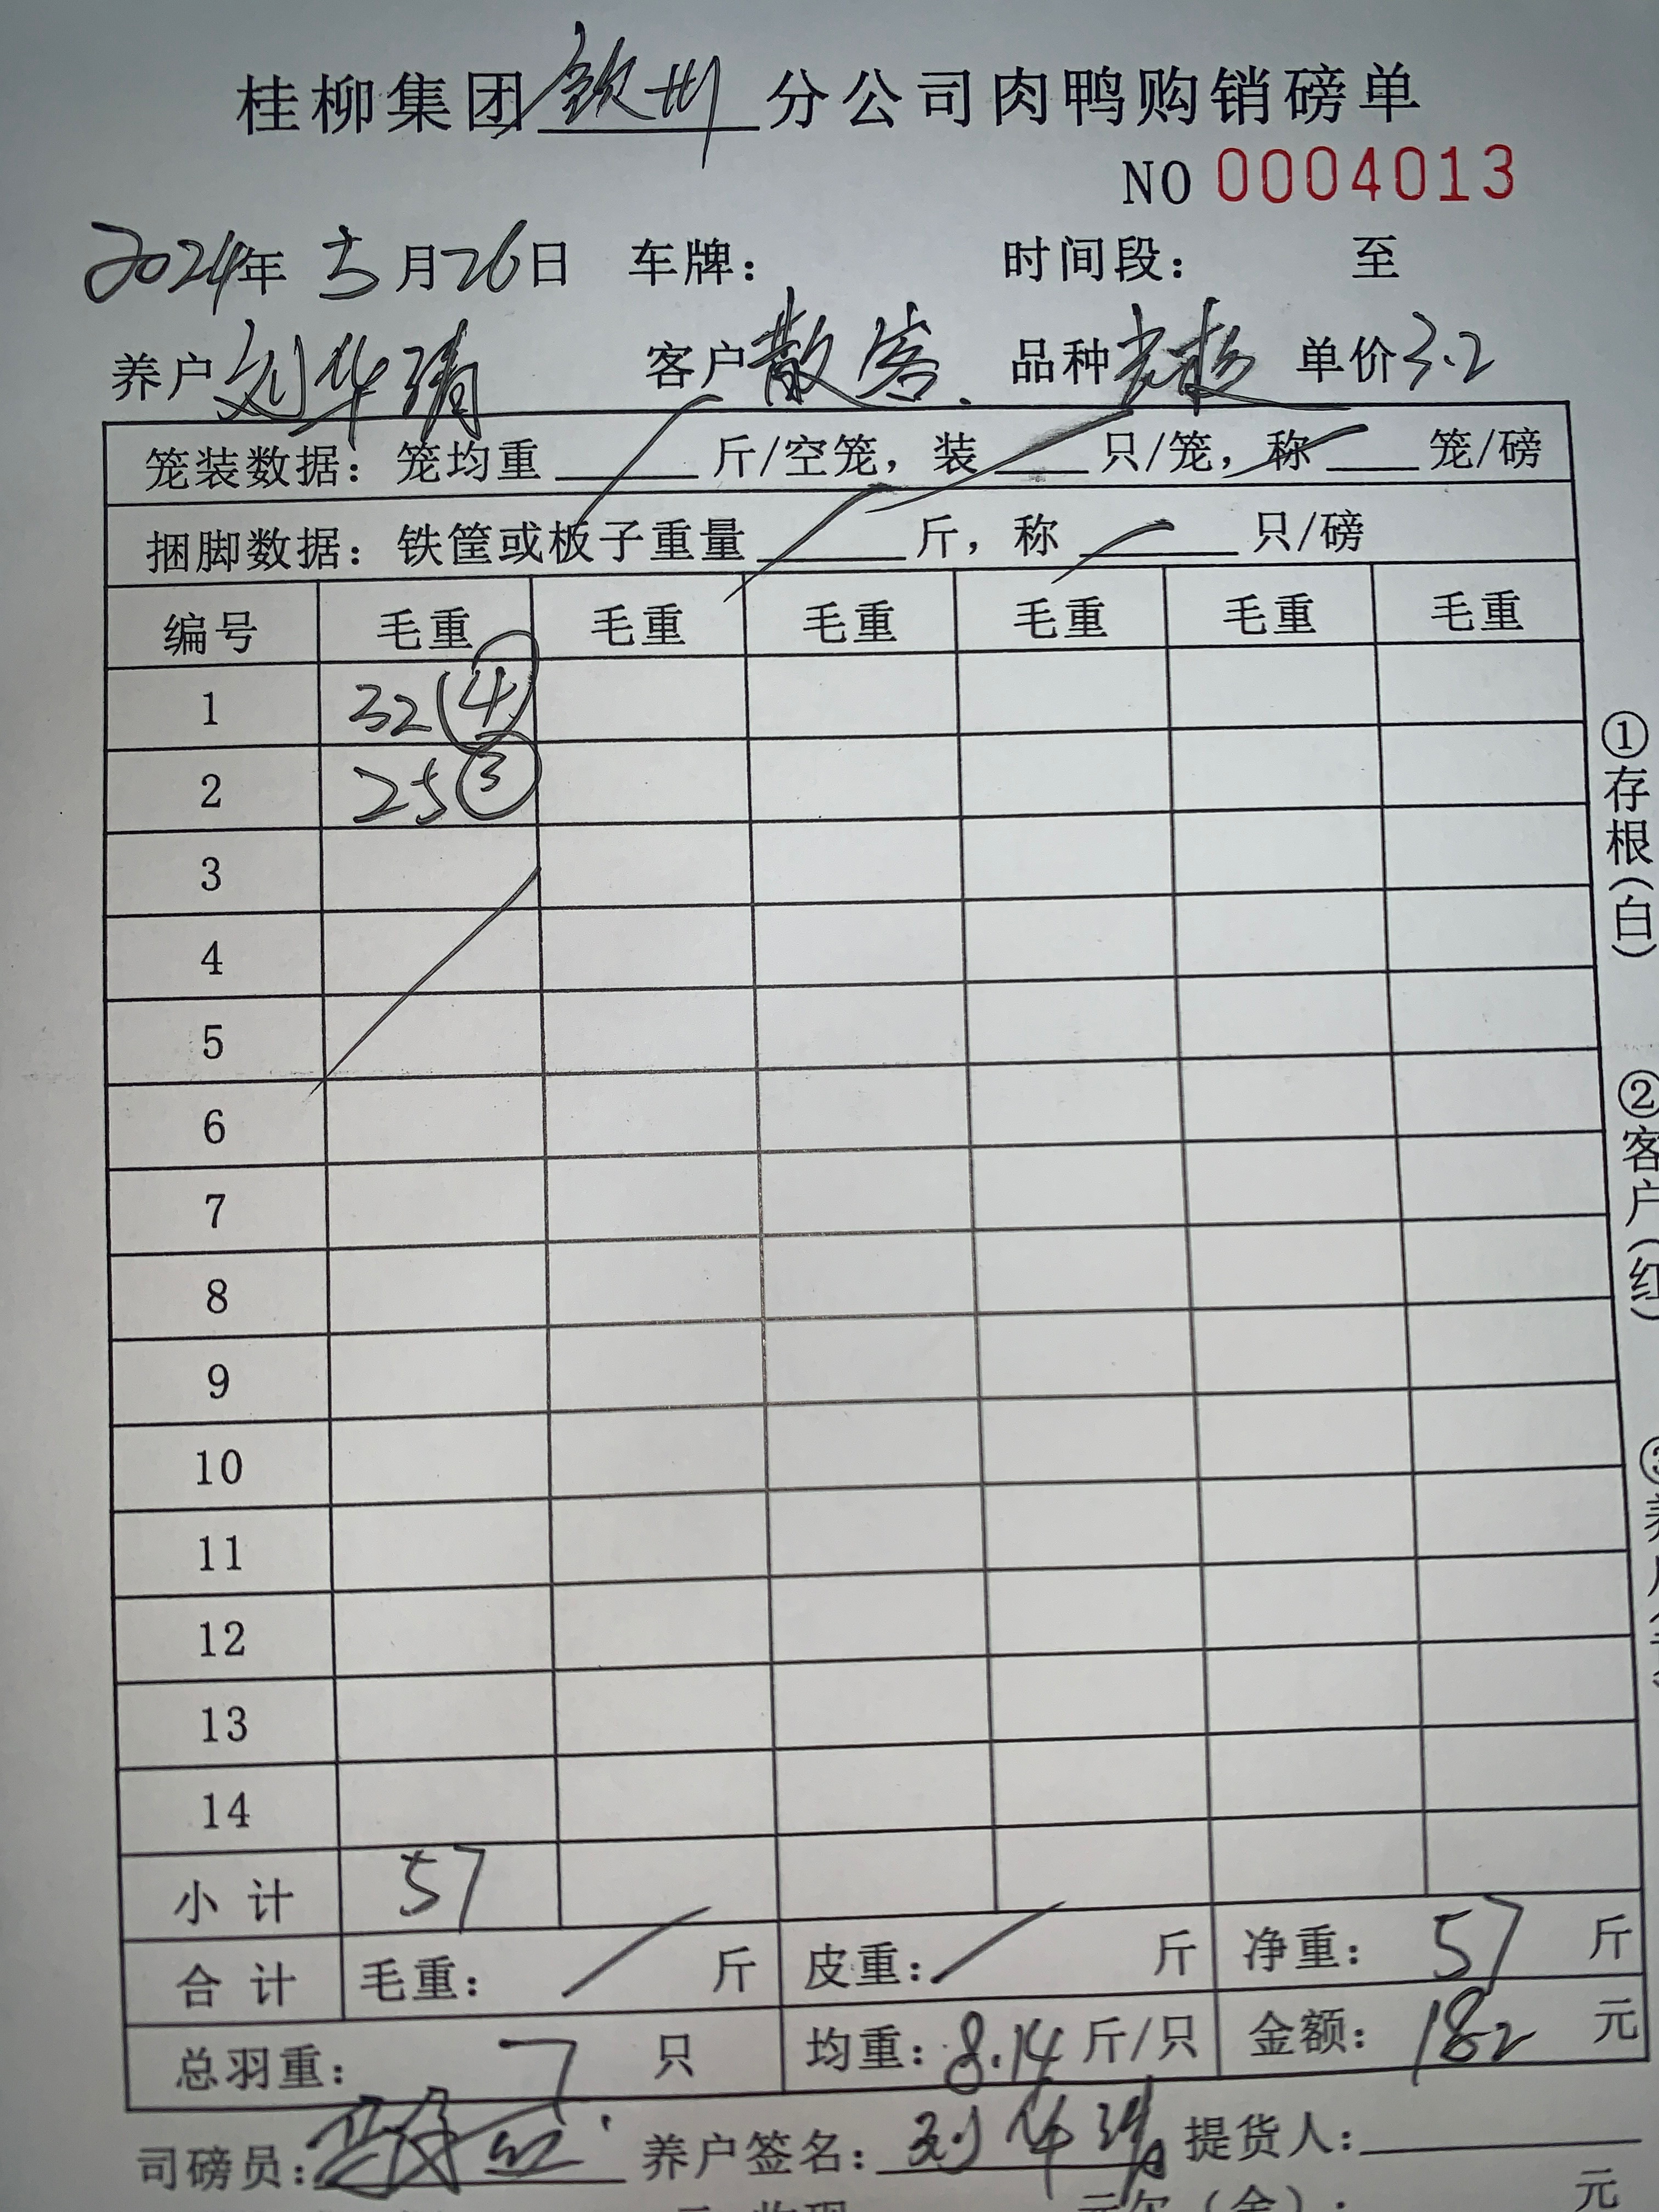 桂柳集团钦州分公司肉鸭购销磅单
NO 0004013
2024年5月26日 车牌: 时间段: 至
养户刘华清 客户散客. 品种 单价3.2
笼装数据:笼均重 斤/空笼,装 只/笼,称 笼/磅
捆脚数据:铁筐或板子重量 斤,称 只/磅
编号 毛重 毛重 毛重 毛重 毛重 毛重
1 32(4)
2 25③
3
4
5
6
7
8
9
10
11
12
13
14
小计 57
合计 毛重: 斤 皮重: 斤 净重:57斤
总羽重:7只 均重:8.14斤/只 金额:182元
司磅员: 养户签名:刘华清 提货人:
元
①存根(白)
②客户(红)